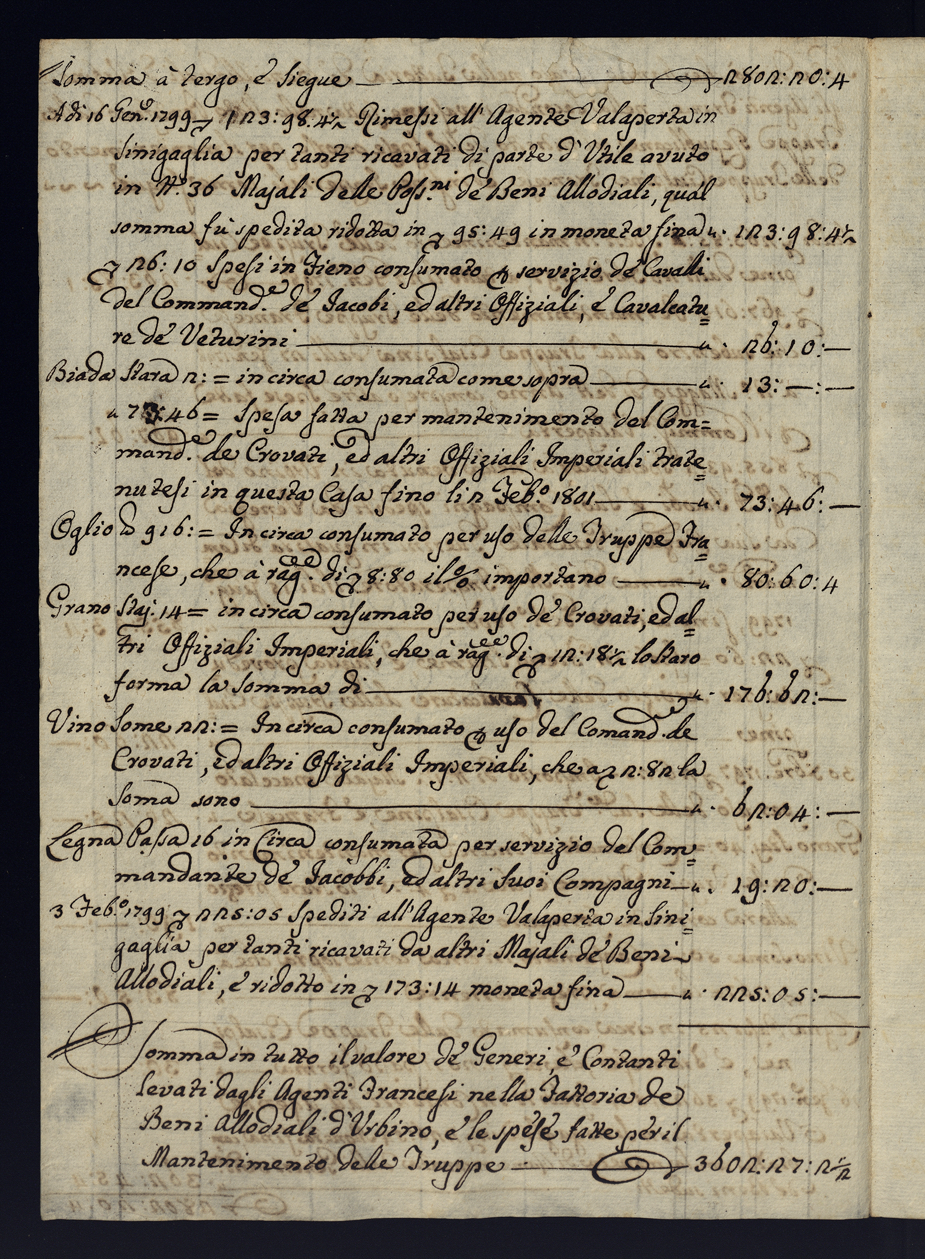 Somma à tergo, e siegue 2802:20:4
Adi 16 Gen.º 1799 ꝫ 123:98:4½ Rimessi all' Agente Valaperta in
Sinigaglia per tanti ricavati di parte d'Utile avuto
in N.º 36 Majali delle Poss.ni de' Beni Allodiali, qual
somma fù spedita ridotta in ꝫ 95:49 in moneta fina „ 123:98:4½
ꝫ 26:10 Spesi in Fieno consumato p servizio de' Cavalli
del Command.e de' Jacobi, ed altri Offiziali, e Cavalcatu=
re de' Veturini „ 26:10:—
Biada Stara 2:= in circa consumata come sopra „ 13:—:—
a 73:46= Spesa fatta per mantenimento del Com=
mand.e de Crovati, ed altri Offiziali Imperiali trate=
nutesi in questa Casa fino li 2 Feb.º 1801 „ 73:46:—
Oglio lb 916:= In circa consumato per uso delle Truppe Fra=
ncese, che à rag.e di ꝫ 8:80 il % importano „ 80:60:4
Grano Staj. 14= in circa consumato per uso de' Crovati, ed al=
tri Offiziali Imperiali, che à rag.e di ꝫ 12:18½ lo Staro
forma la somma di „ 176:62:—
Vino Some 22:= In circa consumato p uso del Comand.e de
Crovati, ed altri Offiziali Imperiali, che a ꝫ 2:82 la
Soma sono „ 62:04:—
Legna Passa 16 in Circa consumata per servizio del Com=
mandante de' Jacobbi, ed altri suoi Compagni „ 19:20:—
3 Feb.º 1799 ꝫ 225:05 Spediti all'Agente Valaperta in Sini=
gaglia per tanti ricavati da altri Majali de' Beni
Allodiali, e ridotto in ꝫ 173:14 moneta fina „ 225:05:—
Somma in tutto il valore de' Generi, e' Contanti
levati dagli Agenti Francesi nella Fattoria de
Beni Allodiali d'Urbino, e le spese fatte per il
Mantenimento delle Truppe 3602:27:2½